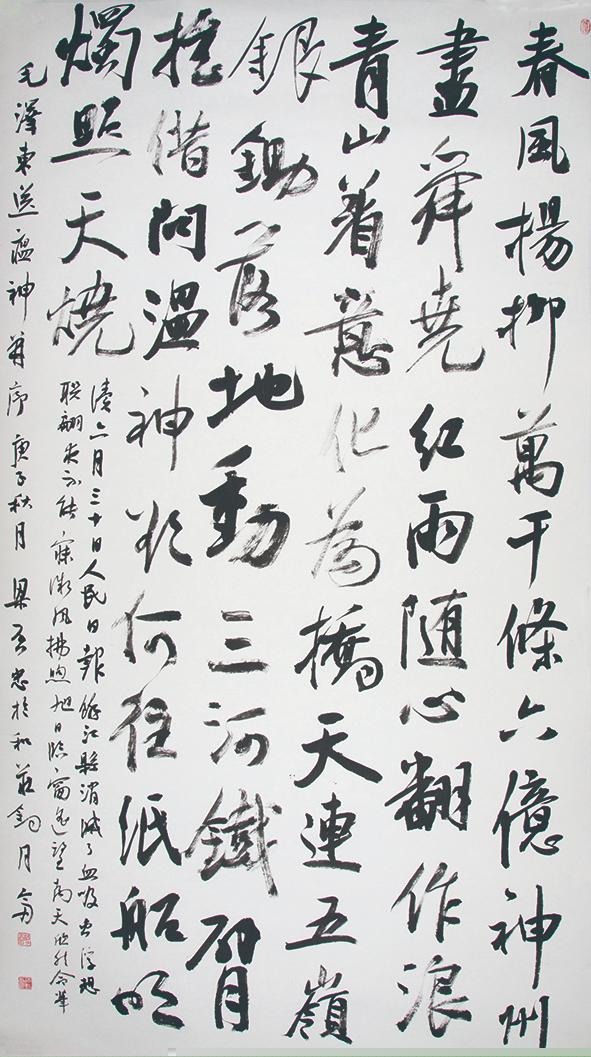 春風楊柳萬千條六億神州
盡舜堯紅雨随心翻作浪
青山着意化為橋天連五嶺
銀鋤落地動三河鐵臂
摇借問温神欲何往紙船明
燭照天燒
讀六月三十日人民日報餘江縣消滅了血吸虫浮想
聯翩夜不能寐微風拂煦旭日臨窗遥望南天欣然命筆
毛澤東送瘟神并序庚子秋月梁忠於和莊月